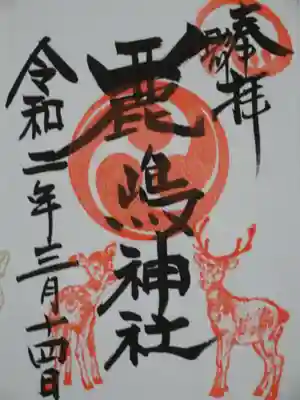 奉拝
鹿嶋神社
令和二年三月十四日